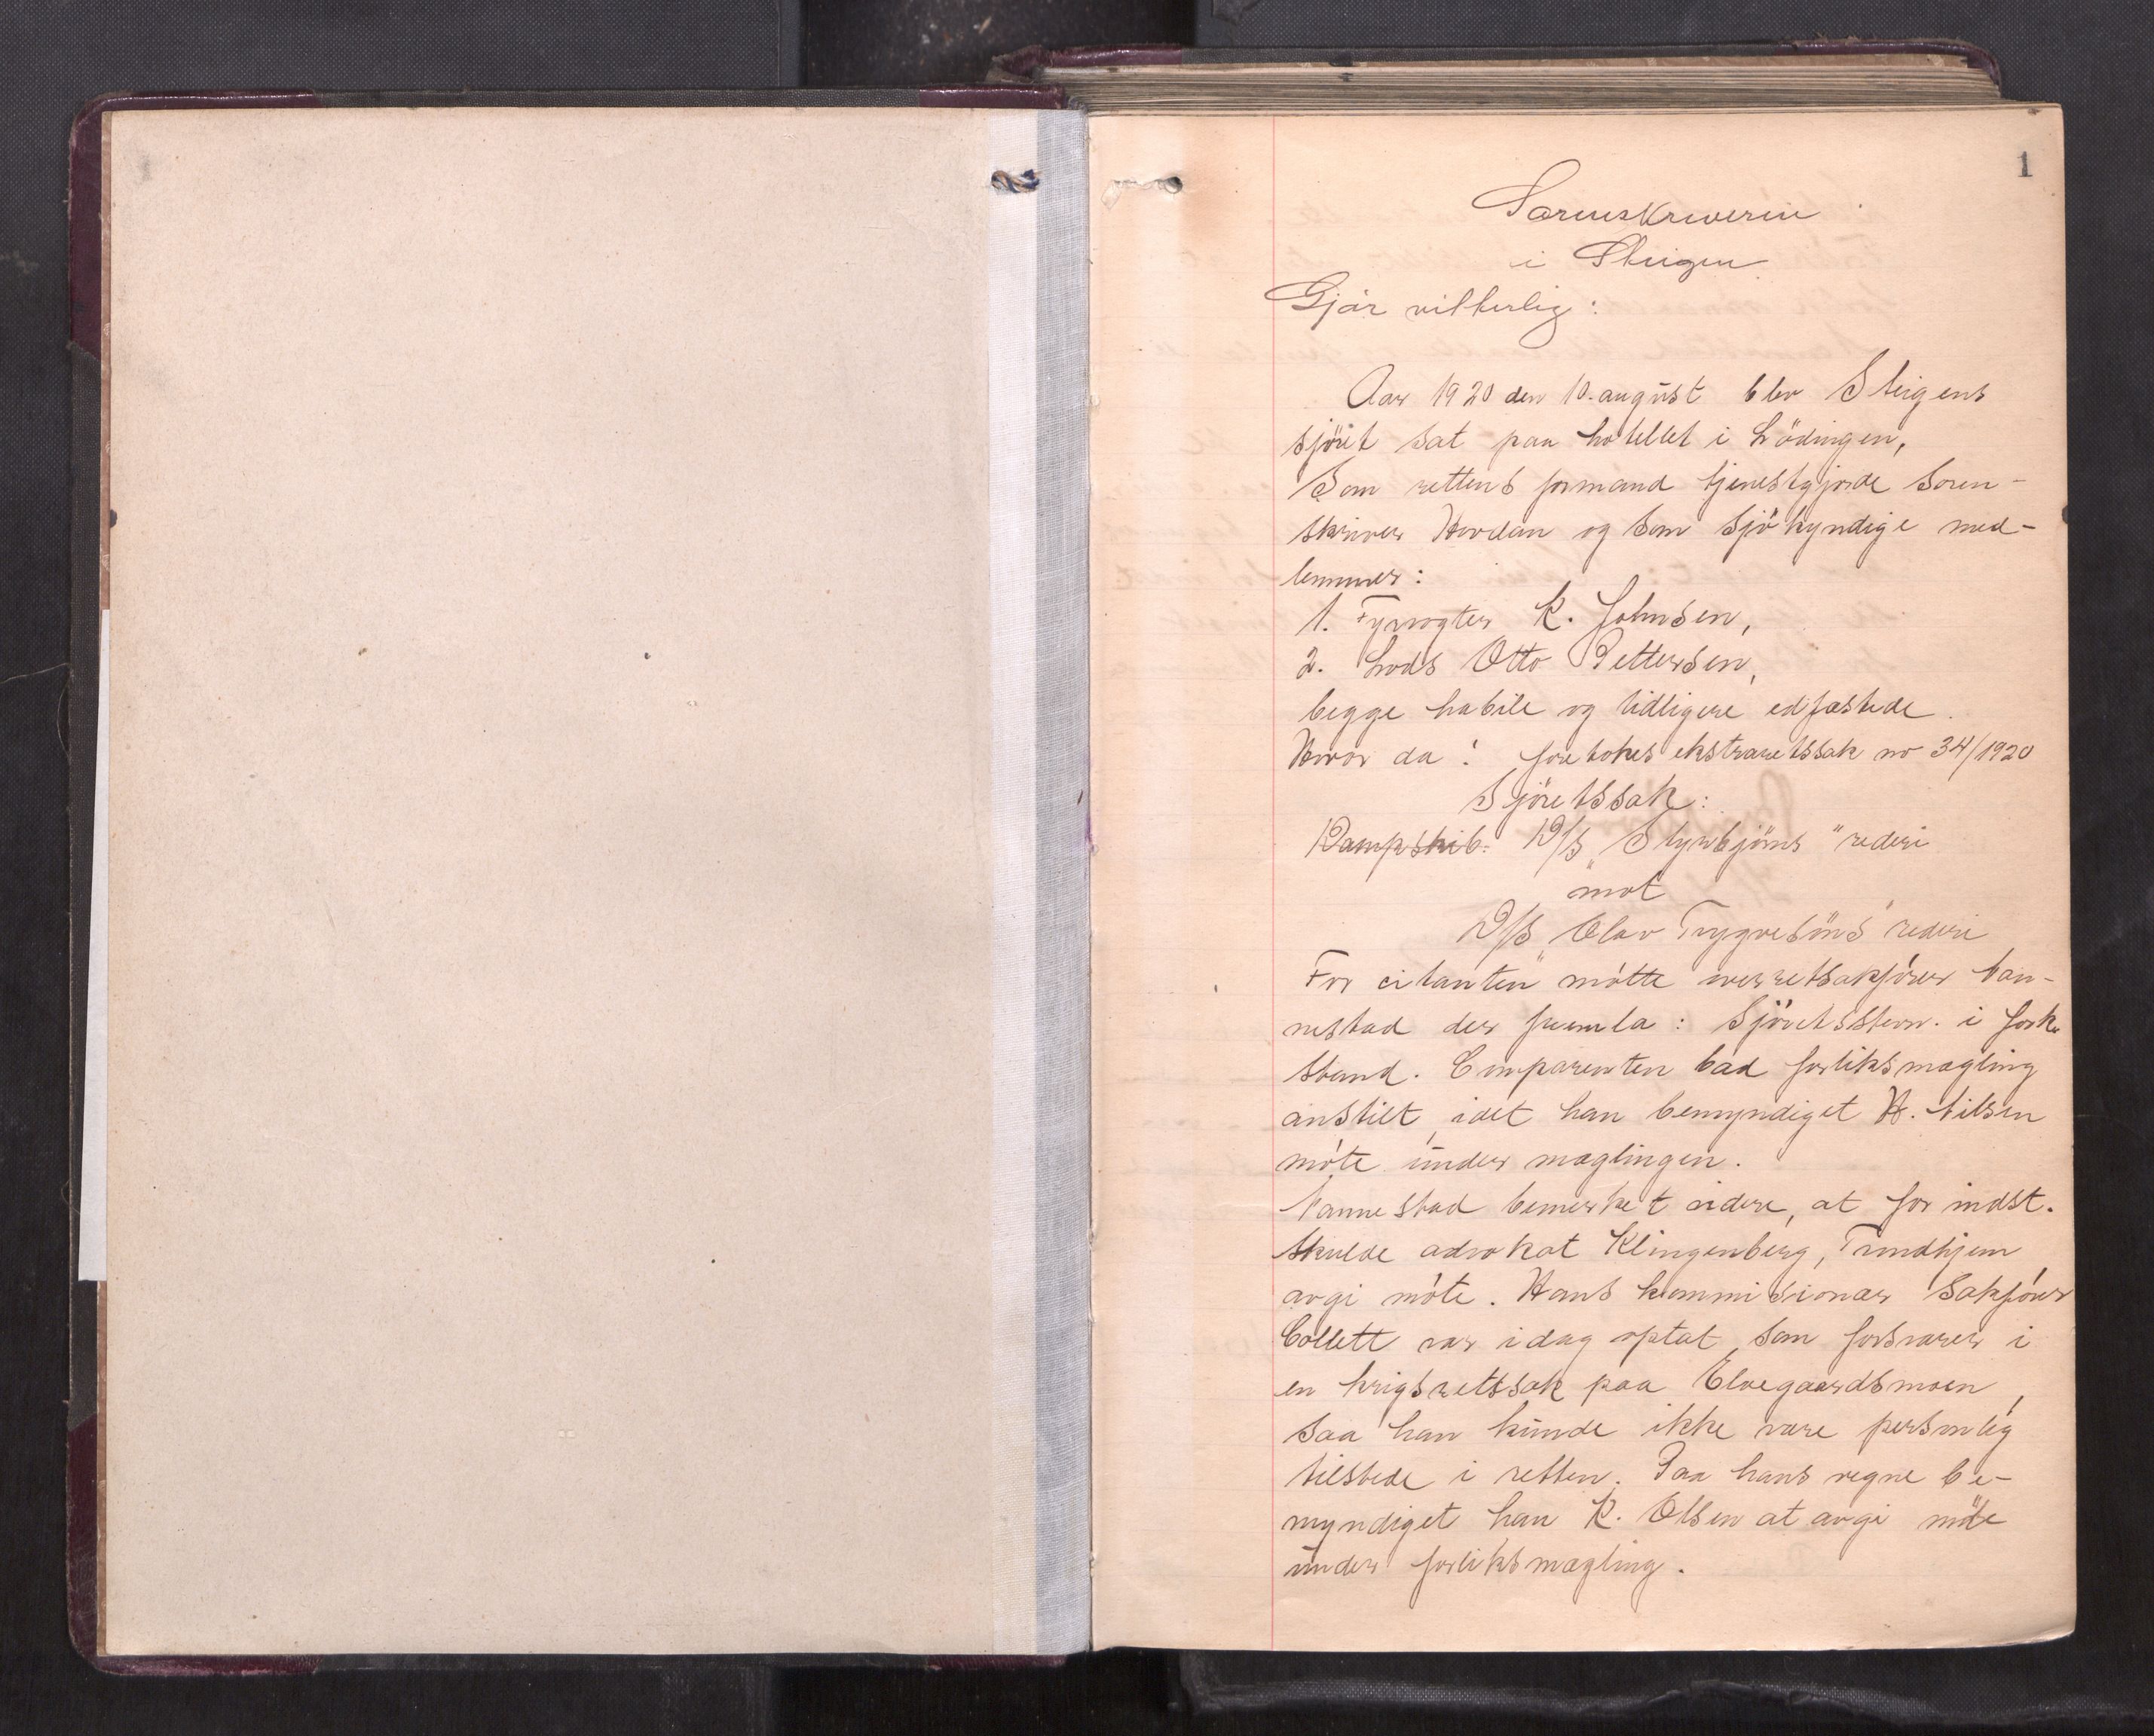 1
Sorenskriveren
i Steigen
Gjör vitterlig:
Aar 1920 den 10. august blev Steigens
sjöret sat paa hotellet i Lödingen,
Som rettens formand tjenestgjorde Soren-
skriver Hovdan og som sjökyndige med-
lemmer:
1. Fyrvogter K. Johnsen,
2. Lods Otto Pettersen,
begge habile og tidligere edfæstede.
Hvor da: foretokes ekstraretssak no 34/1920
Sjöretssak:
Dampskib: D/S „Styrbjörns" rederi
mot
D/S „Olav Trygvesöns" rederi
For citanten mötte overretsakförer Van-
nestad der fremla: Sjöretsstevn. i fork.
stand. Comparenten bad forliksmægling
anstilt, idet han bemyndiget H. Nilsen
möte under mæglingen.
Vannestad bemerket videre, at for indst.
skulde advokat Klingenberg, Trondhjem
avgi möte. Hans kommissionær Sakförer
Collett var idag optat som forsvarer i
en krigsretssak paa Elvegaardsmoen,
saa han kunde ikke være personlig
tilstede i retten. Paa hans vegne be-
myndiget han K. Olsen at avgi möte
under forliksmægling.